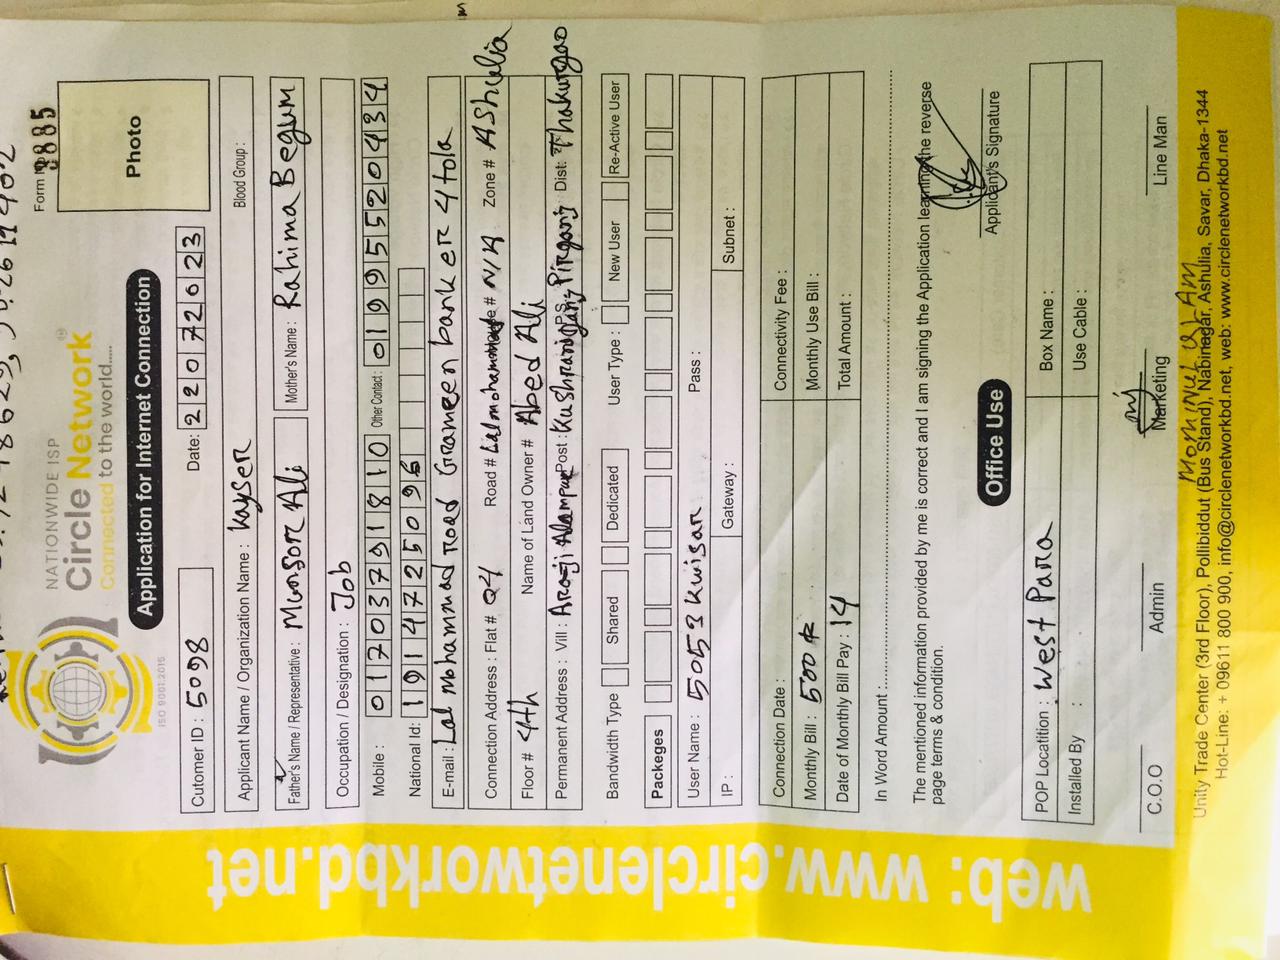 Form No 885
NATIONWIDE ISP
Circle Network®
Connected to the world.....
ISO 9001:2015
Application for Internet Connection
Photo
Cutomer ID : 5098 Date: 22072023
Applicant Name / Organization Name : Kayser Blood Group :
Father's Name / Representative : Munsor Ali Mother's Name : Rahima Begum
Occupation / Designation : Job
Mobile : 01703791810 Other Contact: 01995520434
National Id: 1914725096
E-mail : Lal Mohammad Road Grameen bank er 4 tola
Connection Address : Flat # Q4 Road # Lalmohammad # N/A Zone # Ashulia
Floor # 4th Name of Land Owner # Abed Ali
Permanent Address : Vill : Araji Alampur Post : P.S: Pirganj Dist: Thakurgao
Bandwidth Type Shared Dedicated User Type : New User Re-Active User
Packeges
User Name : 5053 Kwisar Pass :
IP : Gateway : Subnet :
Connection Date : Connectivity Fee :
Monthly Bill : 500 Monthly Use Bill :
Date of Monthly Bill Pay : 14 Total Amount :
In Word Amount :
The mentioned information provided by me is correct and I am signing the Application learning the reverse
page terms & condition.
Applicant's Signature
Office Use
POP Locatition : West Para Box Name :
Installed By : Use Cable :
C.O.O Admin Marketing Line Man
Mominul Islam
Unity Trade Center (3rd Floor), Pollibiddut (Bus Stand), Nabinagar, Ashulia, Savar, Dhaka-1344
Hot-Line: + 09611 800 900, info@circlenetworkbd.net, web: www.circlenetworkbd.net
web: www.circlenetworkbd.net